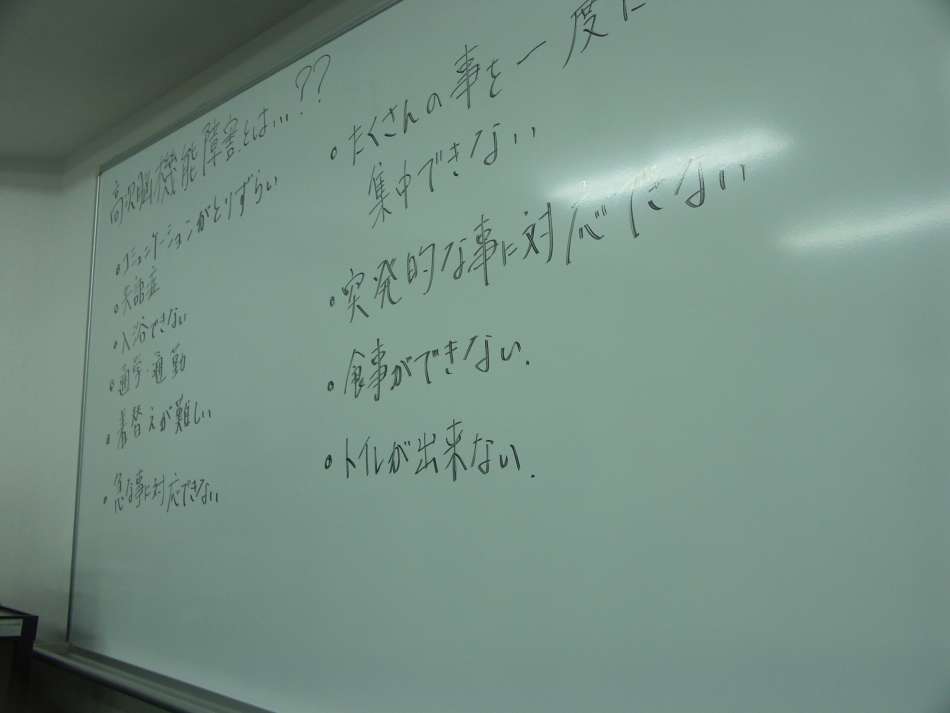 高次脳機能障害とは…??
。コミュニケーションがとりずらい
。失語症
。入浴できない
。通学・通勤
。着替えが難しい
。急な事に対応できない
。たくさんの事を一度に
集中できない
。突発的な事に対応できない
。食事ができない.
。トイレが出来ない.